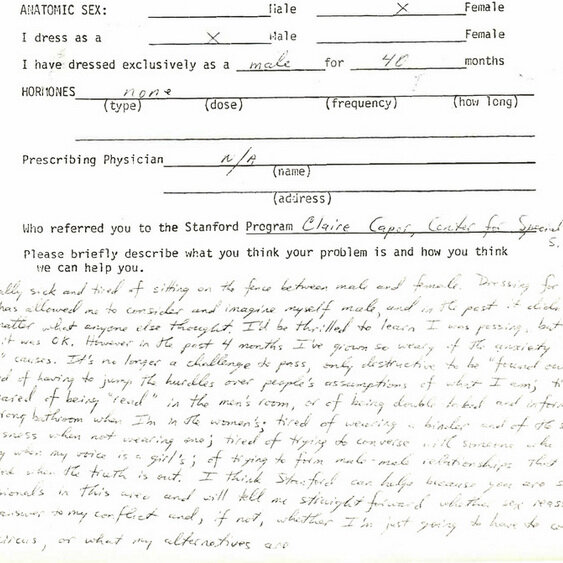 ANATOMIC SEX: Male X Female
I dress as a X Male Female
I have dressed exclusively as a male for 48 months
HORMONES none
(type) (dose) (frequency) (how long)
Prescribing Physician N/A
(name)
(address)
Who referred you to the Stanford Program Claire Capor, Center for Special
S.
Please briefly describe what you think your problem is and how you think
we can help you.
sick and tired of sitting on the fence between male and female. Dressing for
has allowed me to consider and imagine myself male, and in the past it didn
matter what anyone else thought. I'd be thrilled to learn I was passing, but
it was OK. However in the past 4 months I've grown so weary of the anxiety
" causes. It's no longer a challenge to pass, only destructive to be "found ou
d of having to jump the hurdles over people's assumptions of what I am; ti
ared of being "read" in the men's room, or of being double to bed and infor
rong bathroom when I'm in the women's; tired of wearing a binder and of the s
sness when not wearing one; tired of trying to converse with someone who
y when my voice is a girl's; of trying to form male-male relationships that
ed when the truth is out. I think Stanford can help because you are s
sionals in this area and will tell me straight forward whether sex reass
answer to my conflict and, if not, whether I'm just going to have to co
ircus, or what my alternatives are